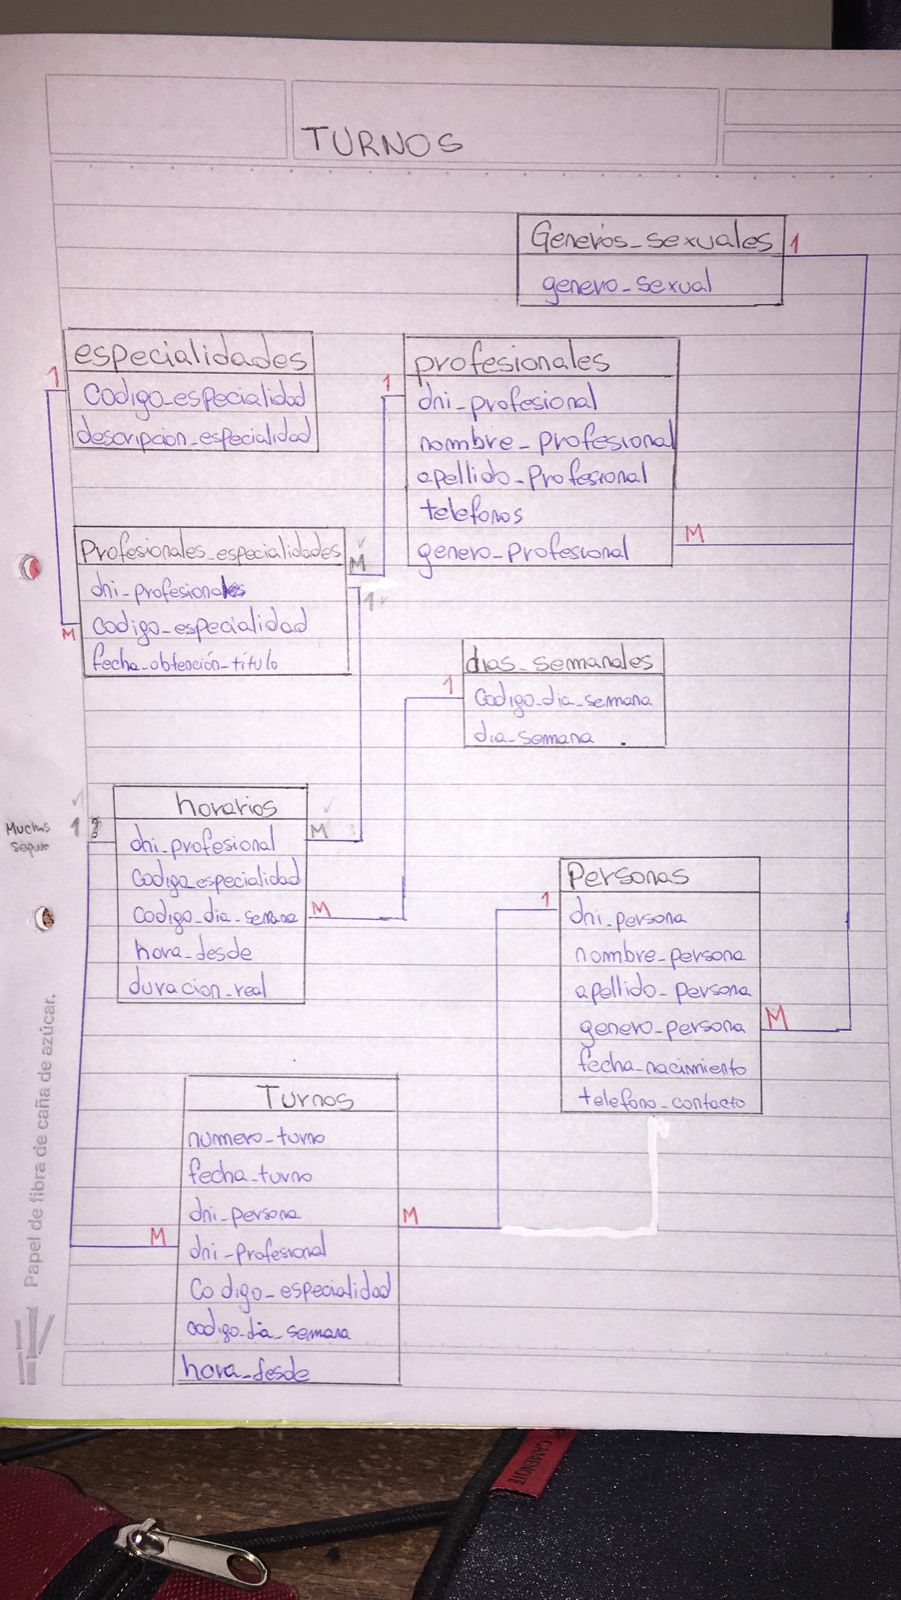 TURNOS
Generos_sexuales
1
genero_sexual
especialidades
1
codigo_especialidad
descripcion_especialidad
profesionales
1
dni_profesional
nombre_profesional
apellido_profesional
telefonos
genero_profesional
M
Profesionales_especialidades
M
dni_profesionales
1
codigo_especialidad
M
fecha_obtención_título
dias_semanales
1
codigo_dia_semana
dia_semana
horarios
Muchas
seguro
1?
dni_profesional
M
codigo_especialidad
codigo_dia_semana
M
hora_desde
duracion_real
Personas
1
dni_persona
nombre_persona
apellido_persona
genero_persona
M
fecha_nacimiento
telefono_contacto
Turnos
numero_turno
fecha_turno
dni_persona
M
M
dni_profesional
Codigo_especialidad
codigo_dia_semana
hora_desde
Papel de fibra de caña de azúcar.